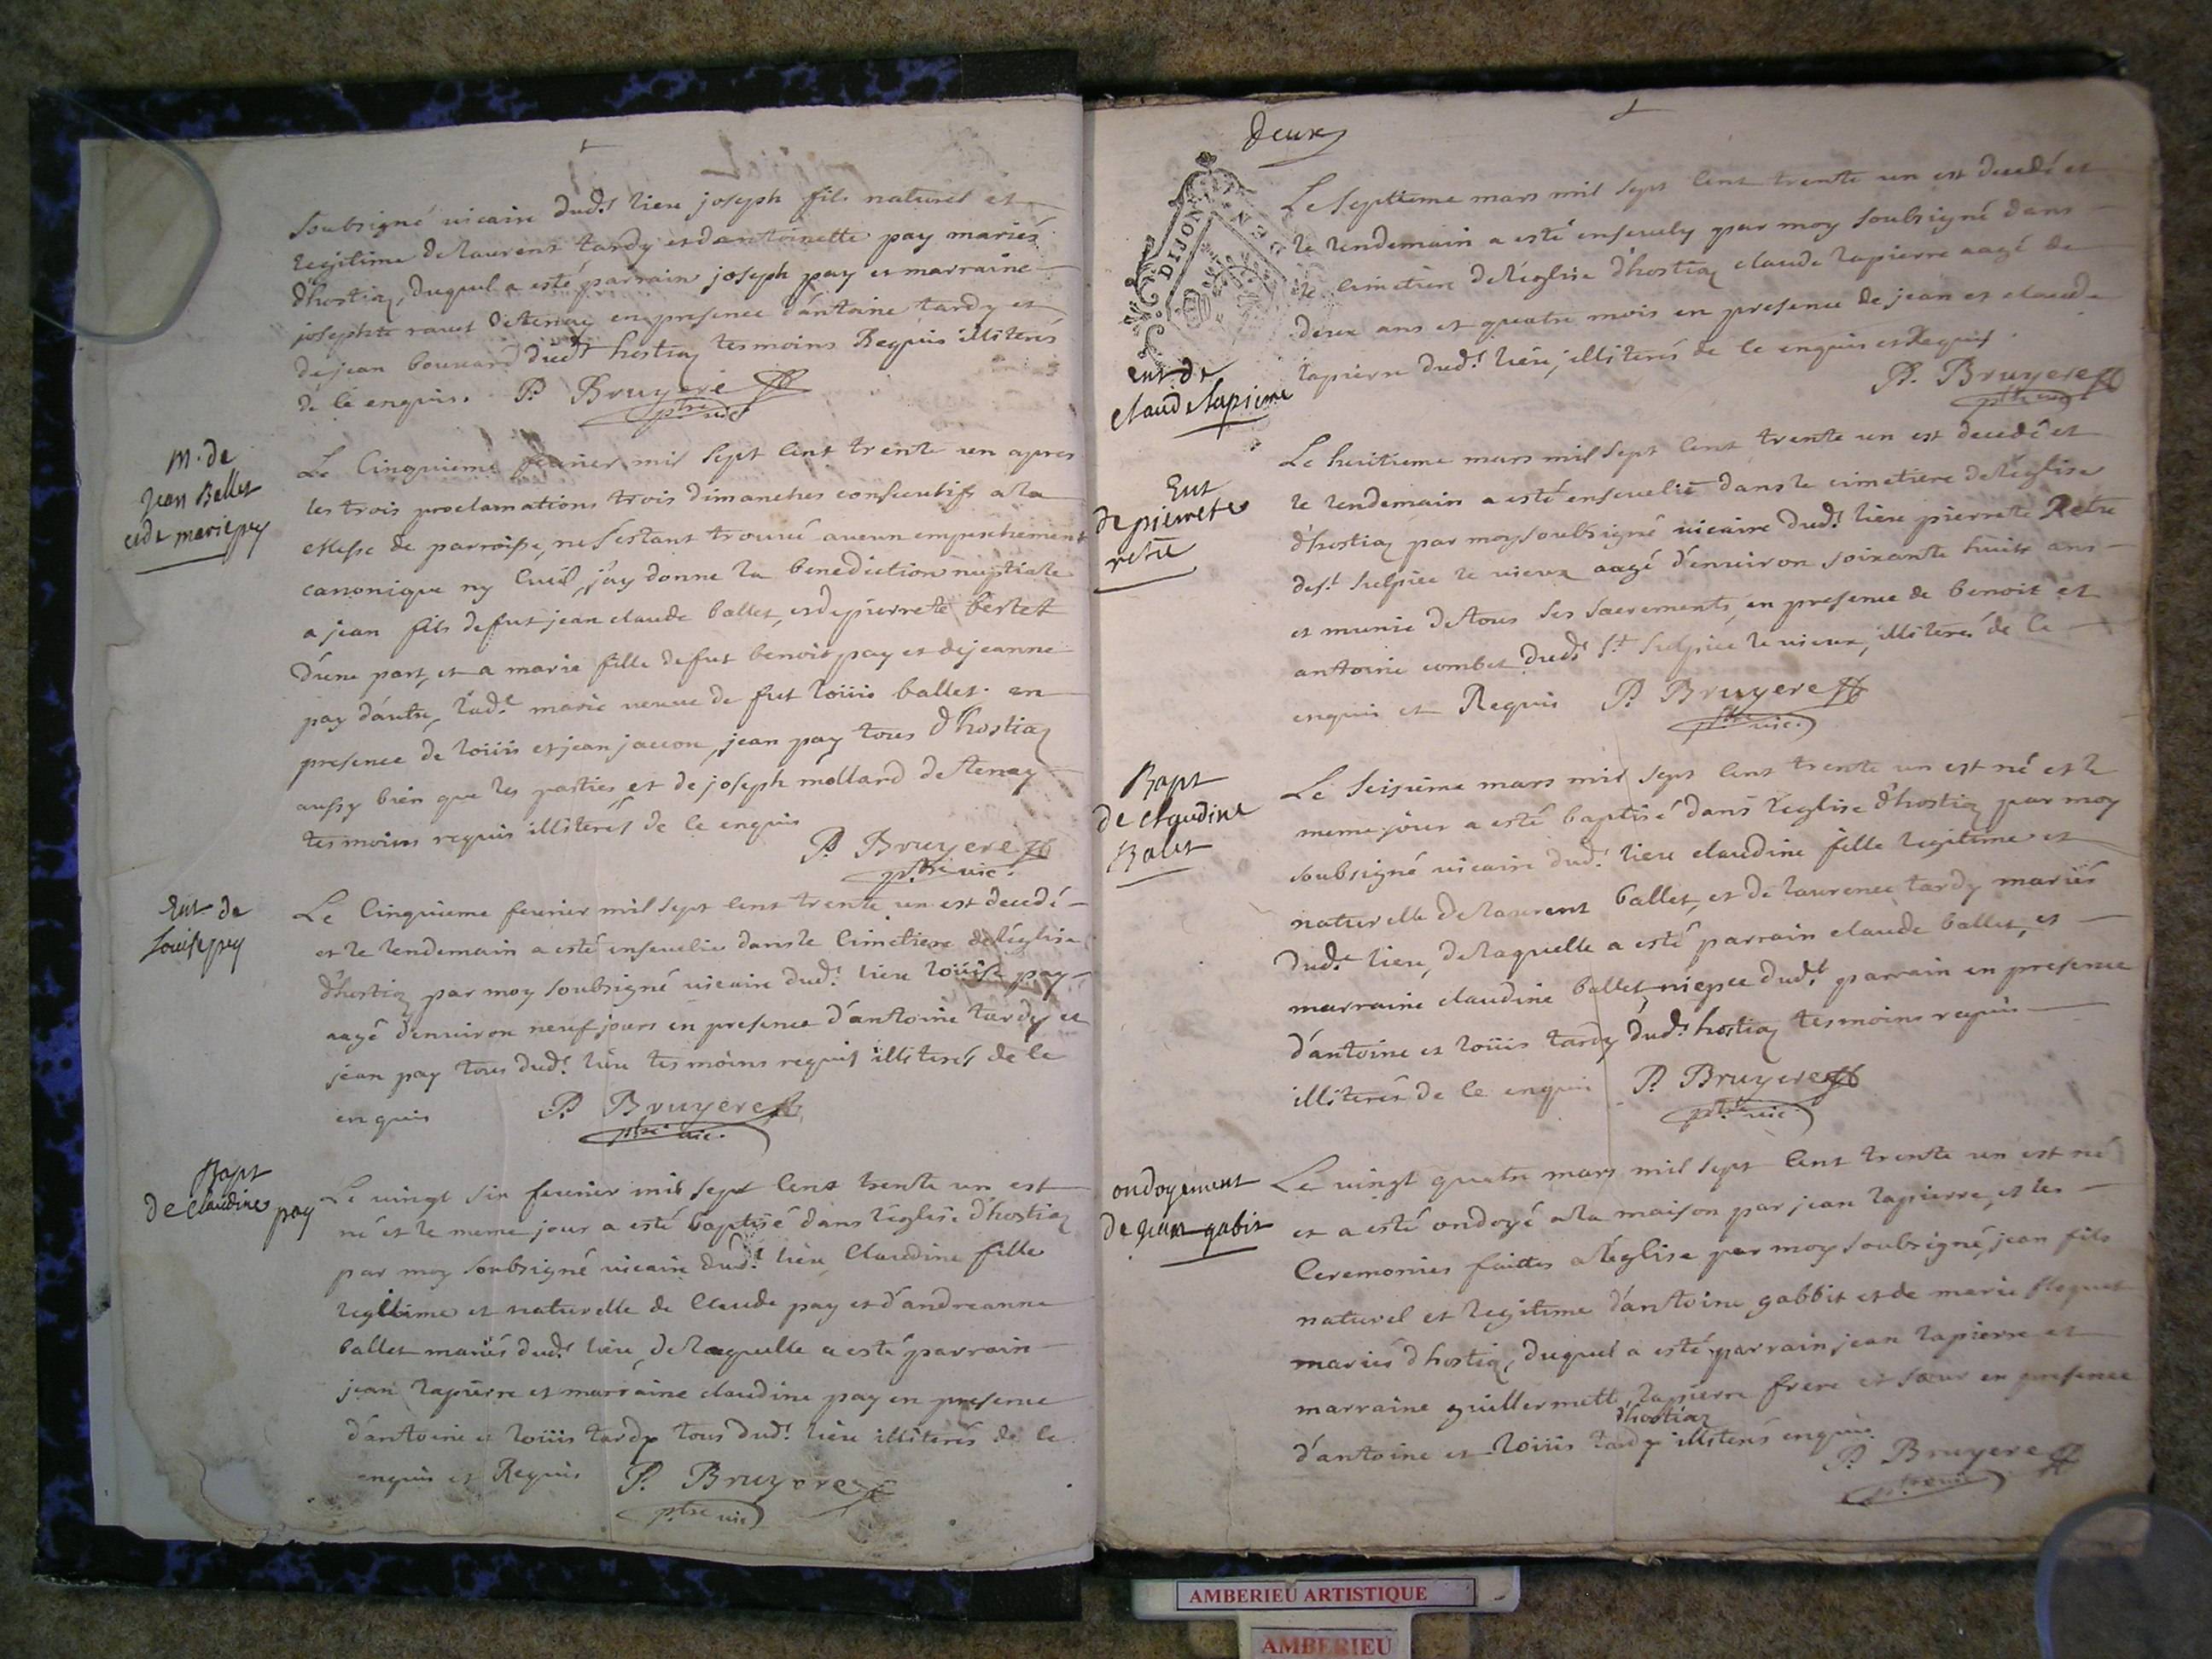 soubsigné vicaire dud.t lieu joseph fils naturel et
legitime de laurent tardy et dantoinette pay mariés
d'hostiaz, duquel a esté parrain joseph pay et marraine
josephte ravet de tenay en presence d'antoine tardy et
de jean bouvard dud.t hostiaz tesmoins Requis illiterés
de ce enquis. P. Bruyere
ptre vic
M. de
Jean Ballet
et de marie pey
Le Cinquieme fevrier mil sept cent trente un apres
les trois proclamations trois dimanches consecutifs a la
Messe de parroisse, ne s'estant trouvé aucun empeschement
canonique ny Civil, j'ay donne la benediction nuptiale
a jean fils de fut jean claude ballet, et de pierrete bertet
d'une part, et a marie fille de fut benoit pay et de jeanne
pay d'autre, lad.e marie veuve de fut loüis ballet. en
presence de loüis et jean juuon, jean pay tous d'hostiaz
aussy bien que les parties et de joseph mollard de tenay
tesmoins requis illiteres de ce enquis
P. Bruyere
ptre vic.
Ent de
Louise pey
Le Cinquieme fevrier mil sept cent trente un est decedé
et le lendemain a esté ensevelie dans le Cimetiere de l'église
d'hostiaz par moy soubsigné vicaire dud.t lieu loüise pay
aagé d'environ neuf jours en presence d'antoine tardy et
jean pay tous dud.t lieu tesmoins requis illiterés de ce
enquis P. Bruyere
ptre vic.
Bapt
de Claudine pay
Le vingt six fevrier mil sept cent trente un est
né et le meme jour a esté baptisé dans l'églis d'hostiaz
par moy soubsigné vicaire dud.t lieu Claudine fille
legitime et naturelle de Claude pay et d'andreanne
ballet mariés dud.t lieu, de laquelle a esté parrain
jean lapierre et marraine claudine pay en presence
d'antoine et loüis tardy tous dud.t lieu illiterés de ce
enquis et Requis P. Bruyere
ptre vic
deux
DIJON
GEN
Le Septieme mars mil sept Cent trente un est decedé et
le lendemain a esté ensevely par moy soubsigné dans
le Cimetiere de l'église d'hostiaz claude lapierre aagé de
deux ans et quatre mois en presence de jean et claude
lapierre dud.t lieu, illiterés de ce enquis et Requis
P. Bruyere
ptre vic
Ent de
claude lapierre
Ent
de pierrete
retre
Le huitieme mars mil sept cent trente un est decedé et
le lendemain a esté ensevelie dans le cimetiere de l'église
d'hostiaz par moy soubsigné vicaire dud.t lieu pierrete Retre
de s.t sulpice le vieux aagé d'environ soixante huit ans
et munie de tous ses sacrements, en presence de benoit et
antoine combet dud.t S.t Sulpice le vieux, illiterés de ce
enquis et Requis P. Bruyere
ptre vic.
Bapt
de claudine
Balet
Le Seisieme mars mil sept cent trente un est né et le
meme jour a esté baptisé dans l'eglise d'hostiaz par moy
soubsigné vicaire dud.t lieu claudine fille legitime et
naturelle de laurent ballet, et de laurence tardy mariés
dud.t lieu, de laquelle a esté parrain claude ballet, et
marraine claudine ballet, niepce dud.t parrain en presence
d'antoine et loüis tardy dud.t hostiaz tesmoins requis
illiterés de ce enquis P. Bruyere
ptre vic.
ondoyement
de jean gabit
Le vingt quatre mars mil sept cent trente un est né
et a esté ondoyé a la maison par jean lapierre, et les
Ceremonies faittes a l'église par moy soubsigné, jean fils
naturel et legitime d'antoine gabbit et de marie floquet
mariés d'hostiaz, duquel a esté parrain jean lapierre et
marraine guillermette lapierre frere et sœur en presence
d'hostiaz
d'antoine et loüis tardy illiterés enquis
P. Bruyere
ptre vic
AMBERIEU ARTISTIQUE
AMBERIEU